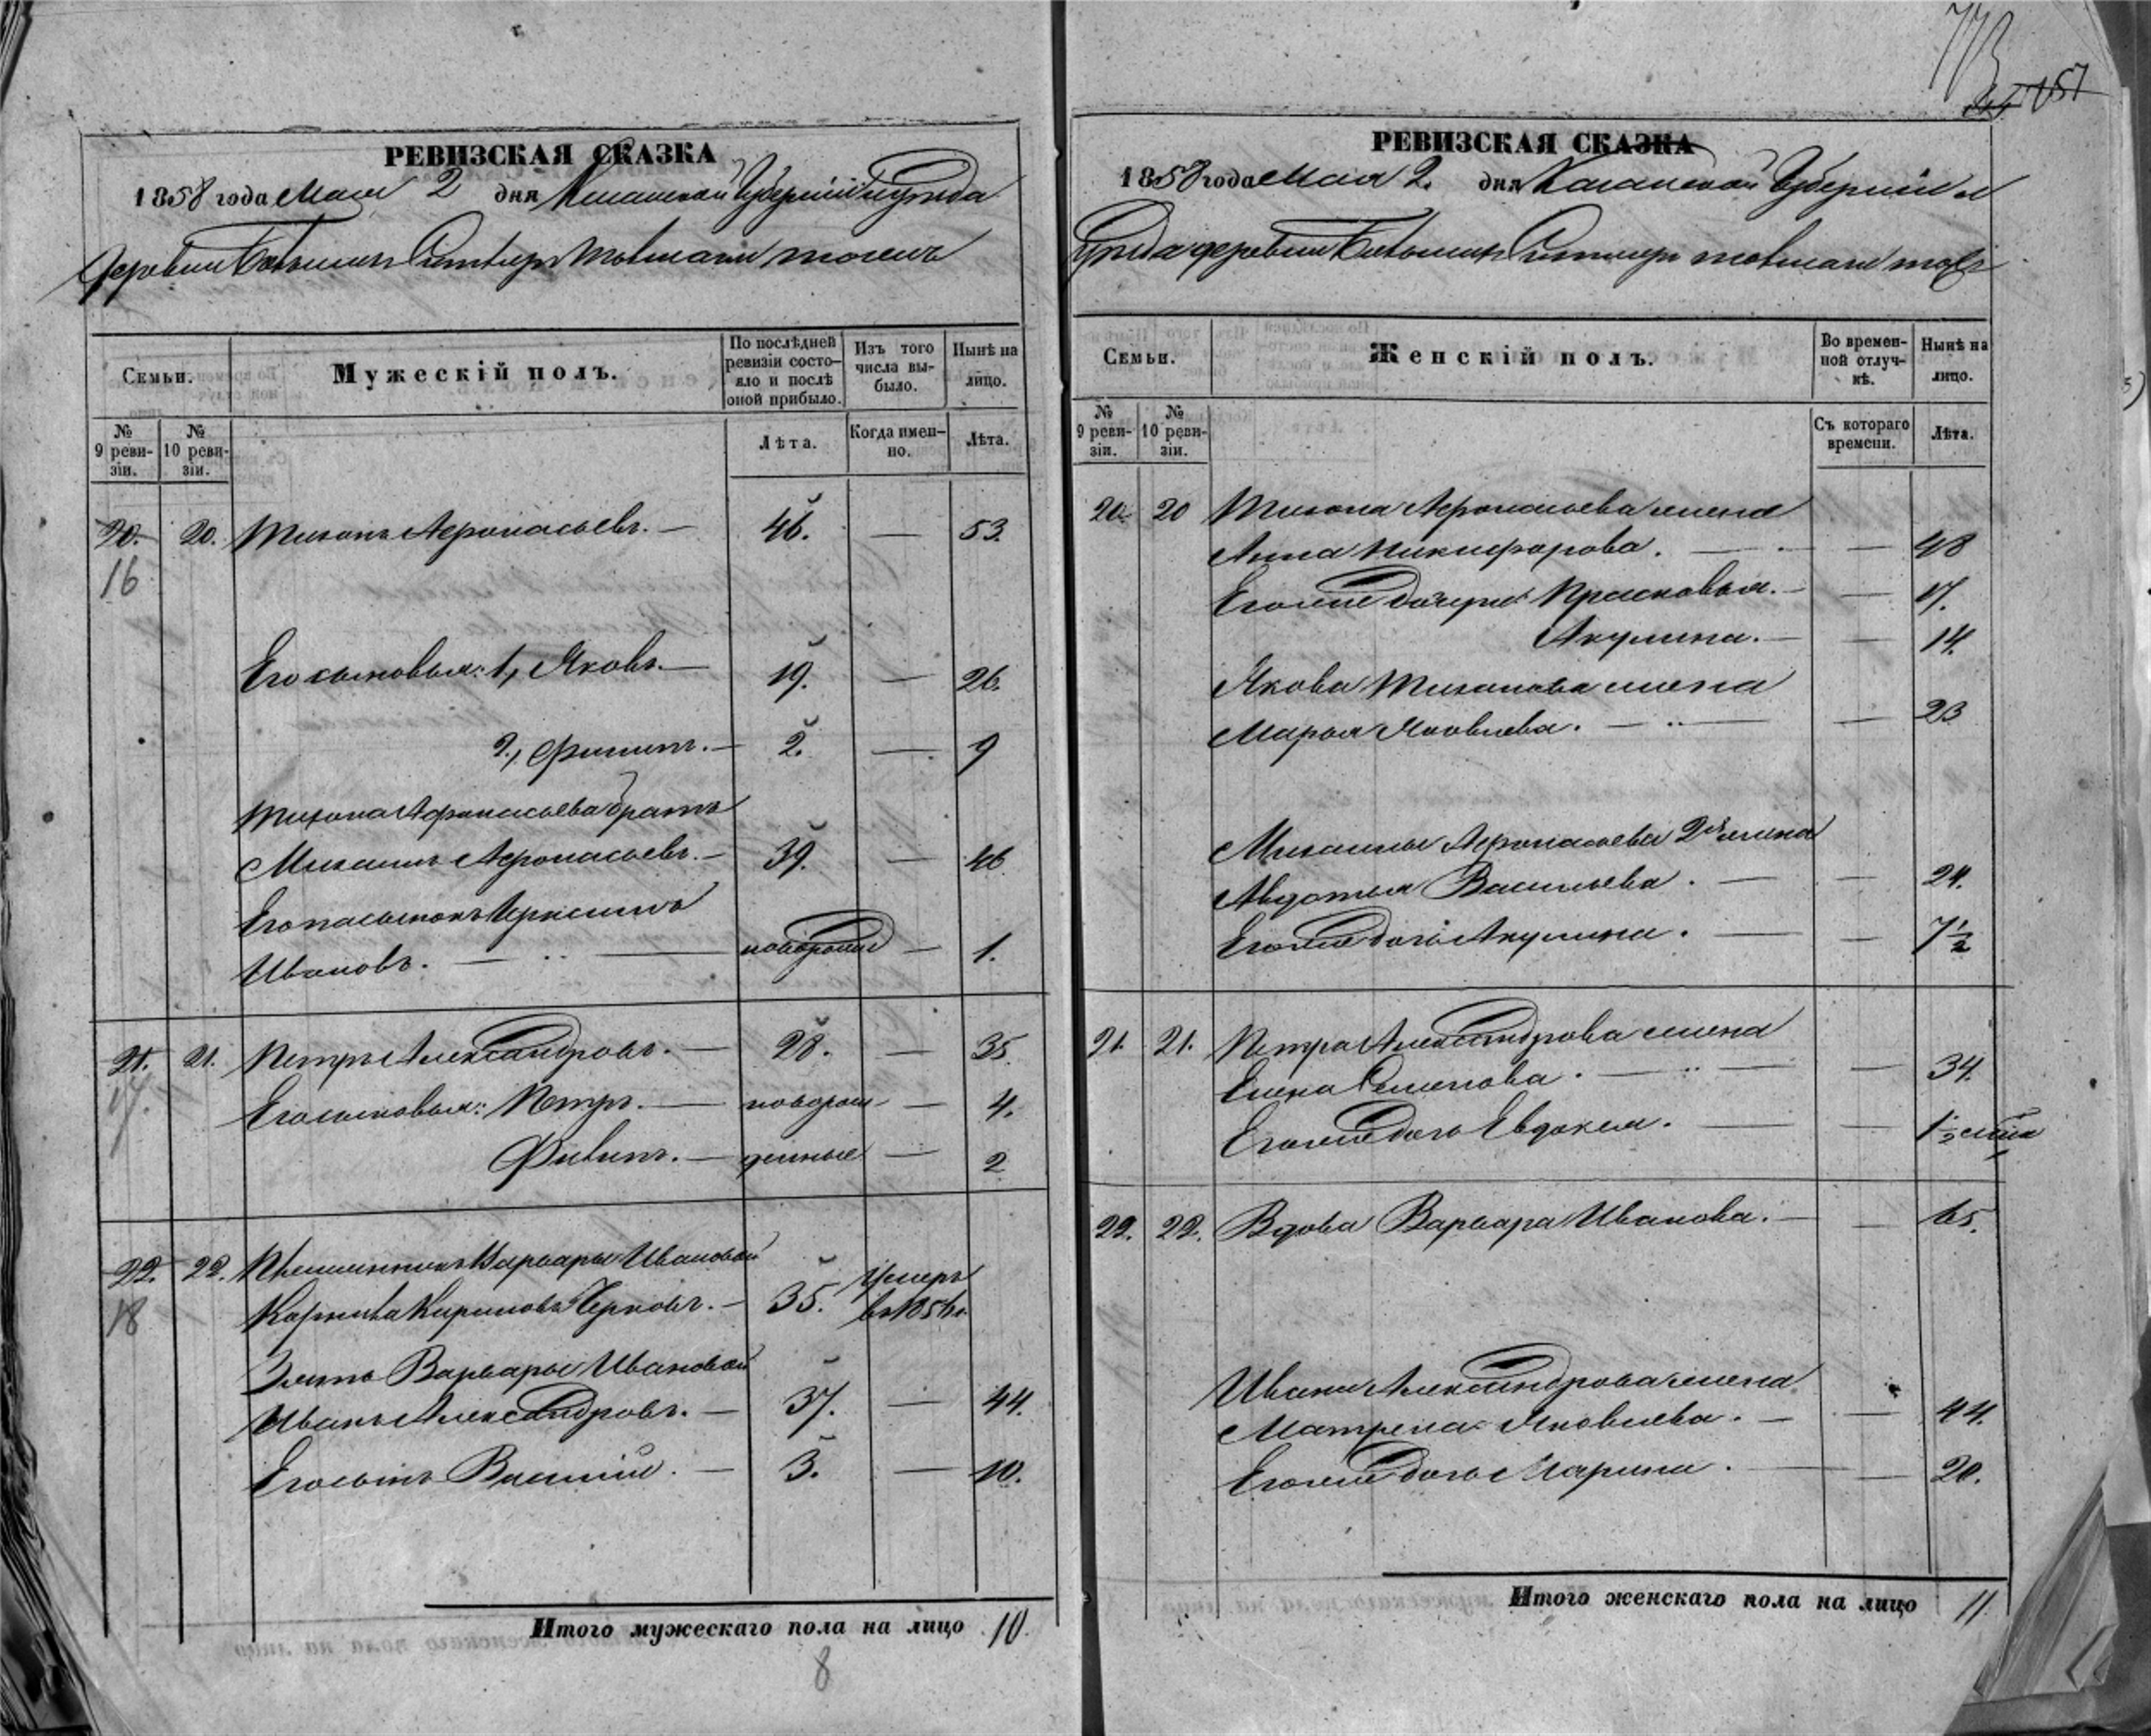 РЕВИЗСКАЯ СКАЗКА
1858 года Мая 2 дня Казанской Губерніи и уезда
деревни
Семьи.
Мужескій полъ.
По послѣдней ревизіи состо-яло и послѣ оной прибыло.
Изъ того числа вы-было.
Нынѣ на лицо.
№ 9 реви-зіи.
№ 10 реви-зіи.
Лѣта.
Когда имен-но.
Лѣта.
20. 20. Тихонъ Афонасьевъ. — 46. — 53.
16
Его сыновья: 1, Яковъ. — 19. — 26.
2, Филипъ. — 2. — 9
Тихона Афонасьева братъ
Михаилъ Афонасьевъ. — 39. — 46
Его пасынокъ
Ивановъ. — новорож — 1.
21. 21. Петръ Александровъ. — 28. — 35.
17.
Его сыновья: Петръ. — новорож — 4.
Филипъ. — денные — 2
22. 22. Племянникъ Варвары Ивановой
18
Кириловъ — 35. Умеръ въ
Зять Варвары Ивановой
Иванъ Александровъ. — 37. — 44.
Его сынъ Василій. — 3. — 10.
Итого мужескаго пола на лицо 10.
8
РЕВИЗСКАЯ СКАЗКА
1858 года Мая 2. дня Казанской Губерніи и
Уезда деревни
Семьи.
Женскій полъ.
Во времен-ной отлуч-кѣ.
Нынѣ на лицо.
№ 9 реви-зіи.
№ 10 реви-зіи.
Съ котораго времени.
Лѣта.
20. 20 Тихона Афонасьева жена
Анна Никифорова. — — 48
Его же дочери Прасковья. — — 17.
Акулина. — — 14.
Якова Тихонова жена
Марья Яковлева. — — 23
Михаилы Афонасьева 2я жена
Авдотья Васильева. — — 24.
Его же дочь Акулина. — — 7 1/2
21. 21. Петра Александрова жена
Елена Семенова. — — 34.
Его же дочь Евдокея. — — 1/2
22. 22. Вдова Варвара Иванова. — — 65.
Ивана Александрова жена
Матрена Яковлева. — — 44.
Его же дочь Марина. — — 20.
Итого женскаго пола на лицо 11